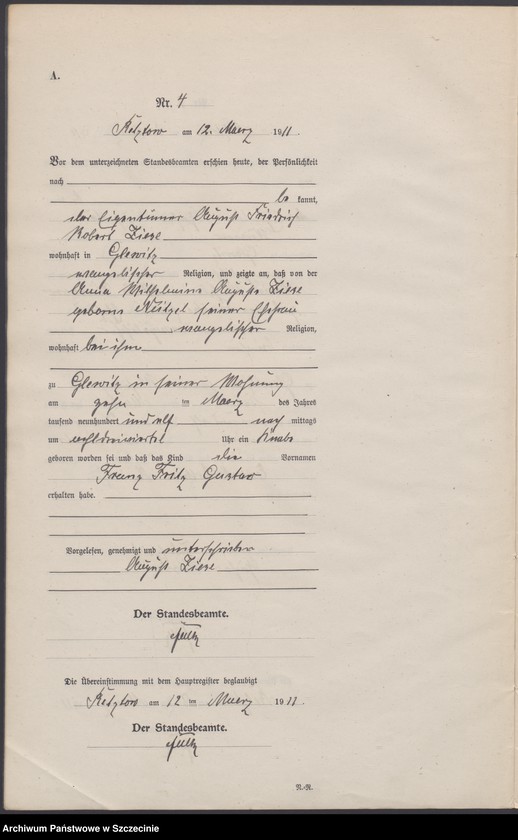 A.
Nr. 4
am 12. Maerz 1911
Vor dem unterzeichneten Standesbeamten erschien heute, der Persönlichkeit
nach
be kannt,
der Eigentümer August Friedrich
Robert Ziese
wohnhaft in Glewitz
evangelischer Religion, und zeigte an, daß von der
Anna Wilhelmine Auguste Ziese
geborne seiner Ehefrau
, evangelischer Religion,
wohnhaft bei ihm
zu Glewitz in seiner Wohnung
am zehn ten Maerz des Jahres
tausend neunhundert und elf nach mittags
um Uhr ein Knabe
geboren worden sei und daß das Kind die Vornamen
Franz Fritz Gustav
erhalten habe.
Vorgelesen, genehmigt und unterschrieben
August Ziese
Der Standesbeamte.
Die Übereinstimmung mit dem Hauptregister beglaubigt
am 12 ten Maerz 1911.
Der Standesbeamte.
Archiwum Państwowe w Szczecinie